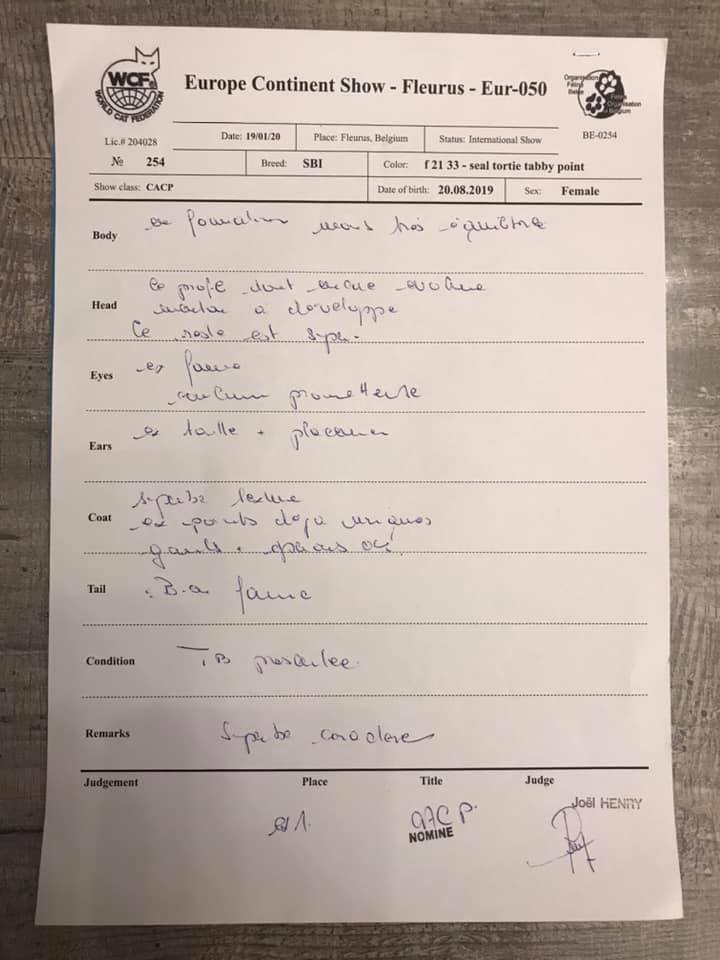 WCF®
WORLD CAT FEDERATION
Europe Continent Show - Fleurus - Eur-050
Organisation
Féline
Belge
Feline
Organisation
Belgium
Lic.# 204028
Date: 19/01/20
Place: Fleurus, Belgium
Status: International Show
BE-0254
№ 254
Breed: SBI
Color: f 21 33 - seal tortie tabby point
Show class: CACP
Date of birth: 20.08.2019
Sex: Female
Body
ex formation mais très équilibré
Head
le profil doit encore évolué
menton à développe
Ce reste est super.
Eyes
ex forme
couleur prometteuse
Ears
ex taille + placement
Coat
superbe texture
ex points déjà
gants + ok.
Tail
forme
Condition
TB présentée.
Remarks
Superbe caractère
Judgement
Place
Title
Judge
ex 1.
CACP.
NOMINE
Joël HENRY